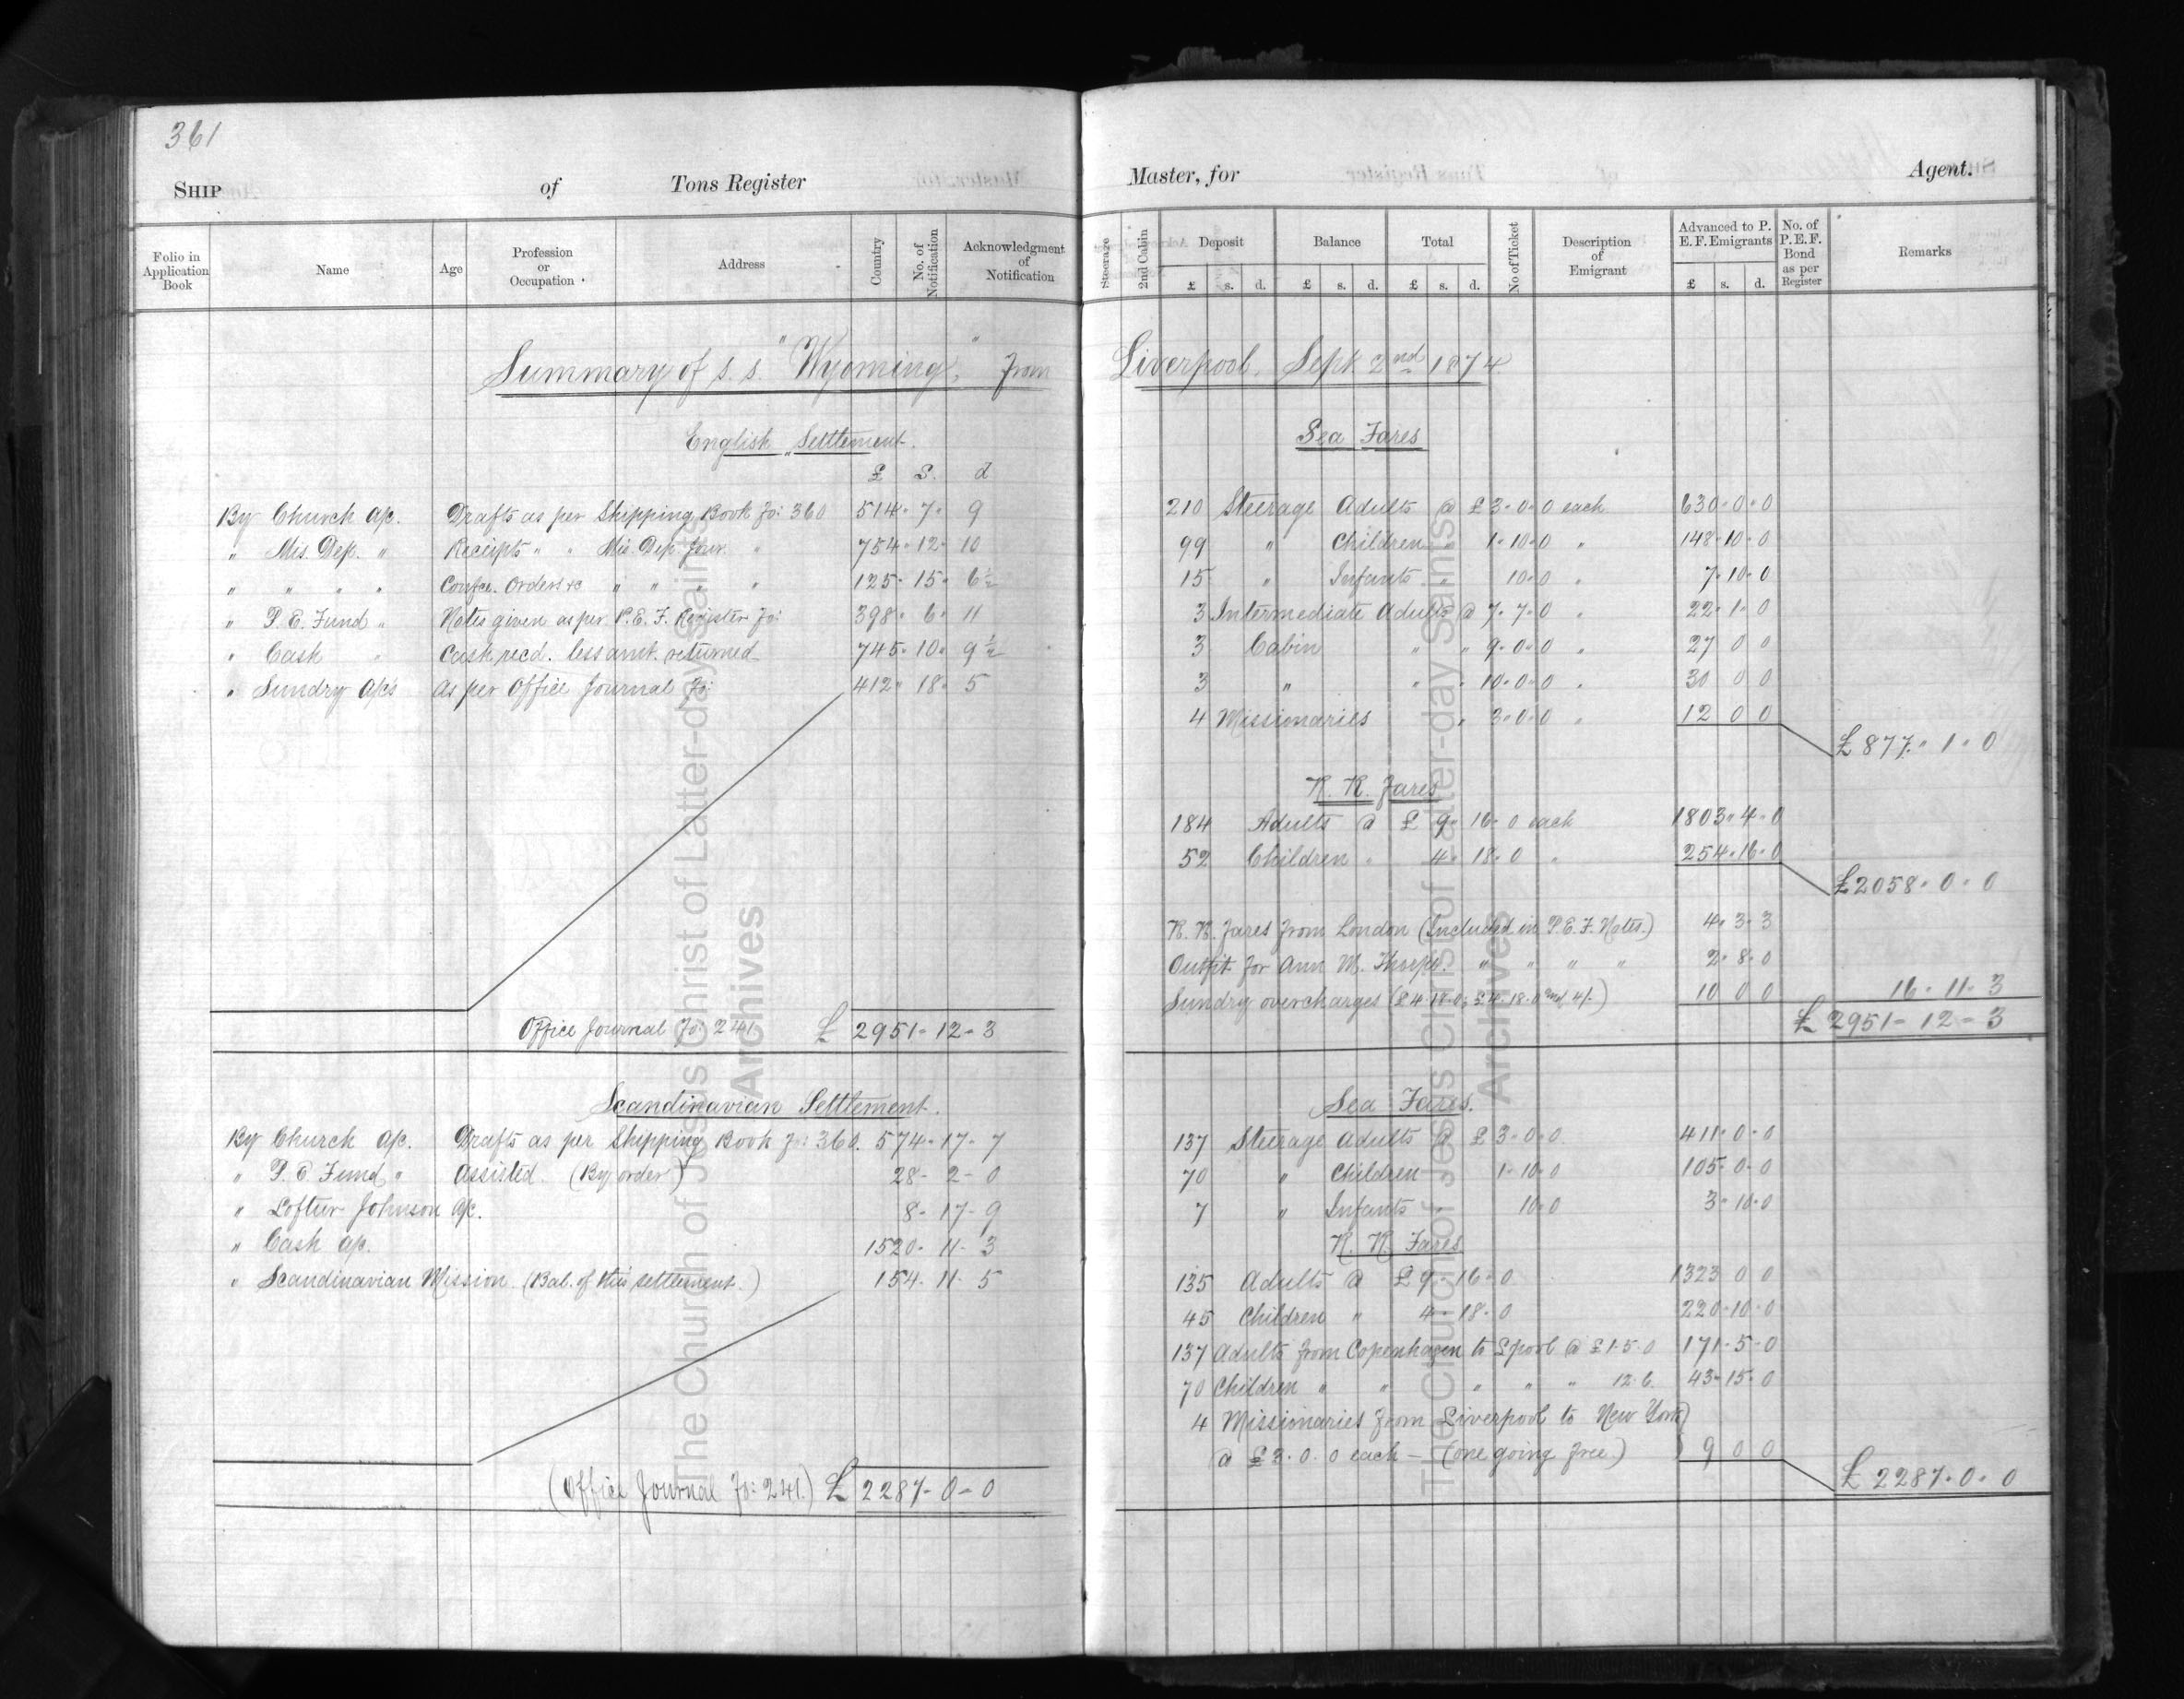 361
SHIP of Tons Register
Folio in Application Book Name Age Profession or Occupation Address Country No. of Notification Acknowledgment of Notification
Summary of s. s. "Wyoming," from
English Settlement.
£ S. d
By Church a/c. Drafts as per Shipping Book fo: 360 514 - 7 - 9
" Mis. Dep. " Receipts " " Mis. Dep. Jour. " 754 - 12 - 10
" " " " Confce. Orders &c " " " " 125 - 15 - 6½
" P. E. Fund " Notes given as per P. E. F. Register fo: 398 - 6 - 11
" Cash " Cash recd. less amt. returned 745 - 10 - 9½
" Sundry a/cs as per Office Journal fo: 412 - 18 - 5
Office Journal fo: 241 £ 2951 - 12 - 3
Scandinavian Settlement.
By Church a/c. Drafts as per Shipping Book fo: 360. 574 - 17 - 7
" P. E. Fund " Assisted. (By order) 28 - 2 - 0
" Loftur Johnson a/c. 8 - 17 - 9
" Cash a/c. 1520 - 11 - 3
" Scandinavian Mission (Bal. of this settlement.) 154 - 11 - 5
(Office Journal fo: 241.) £ 2287 - 0 - 0
Master, for Agent.
Steerage 2nd Cabin Deposit Balance Total No of Ticket Description of Emigrant Advanced to P. E. F. Emigrants No. of P. E. F. Bond as per Register Remarks
£ s. d. £ s. d. £ s. d. £ s. d.
Liverpool, Sept 2nd 1874
Sea Fares
210 Steerage Adults @ £3 - 0 - 0 each 630 - 0 - 0
99 " Children " 1 - 10 - 0 " 148 - 10 - 0
15 " Infants " 10 - 0 " 7 - 10 - 0
3 Intermediate Adults @ 7 - 7 - 0 " 22 - 1 - 0
3 Cabin " " 9 - 0 - 0 " 27 0 0
3 " " " 10 - 0 - 0 " 30 0 0
4 Missionaries " 3 - 0 - 0 " 12 0 0
£877 - 1 - 0
R. R. Fares
184 Adults @ £ 9 - 16 - 0 each 1803 - 4 - 0
52 Children " 4 - 18 - 0 " 254 - 16 - 0
£2058 - 0 - 0
R. R. Fares from London (Included in P. E. F. Notes.) 4 - 3 - 3
Outfit for Ann M. Thorpe. " " " " 2 - 8 - 0
Sundry overcharges (£4-18-0, £4-18-0 and 4/-) 10 0 0 16 - 11 - 3
£ 2951 - 12 - 3
Sea Fares.
137 Steerage Adults @ £3 - 0 - 0. 411 - 0 - 0
70 " Children 1 - 10 - 0 105 - 0 - 0
7 " Infants " 10 - 0 3 - 10 - 0
R. R. Fares
135 Adults @ £9 - 16 - 0 1323 0 0
45 Children " 4 - 18 - 0 220 - 10 - 0
137 Adults from Copenhagen to L'pool @ £1-5-0 171 - 5 - 0
70 Children " " " " " 12-6. 43 - 15 - 0
4 Missionaries from Liverpool to New York
@ £3 - 0 - 0 each - (one going free) 9 0 0
£ 2287 - 0 - 0
The Church of Jesus Christ of Latter-day Saints
Archives
The Church of Jesus Christ of Latter-day Saints
Archives